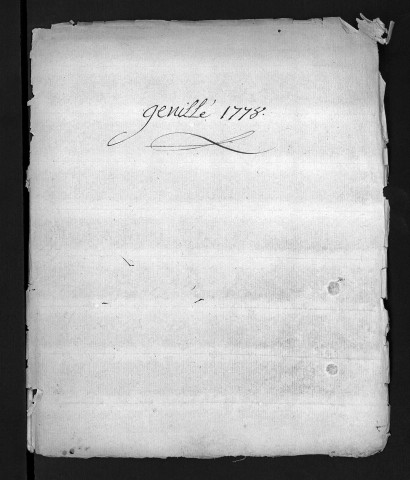 genillé 1778.